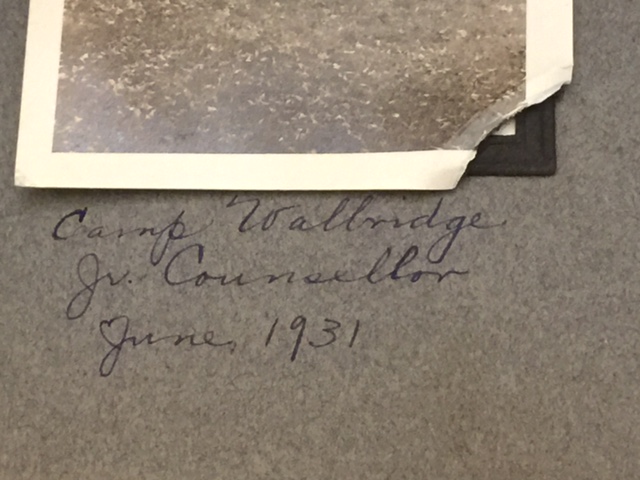 Camp Walbridge
Jr. Counsellor
June, 1931